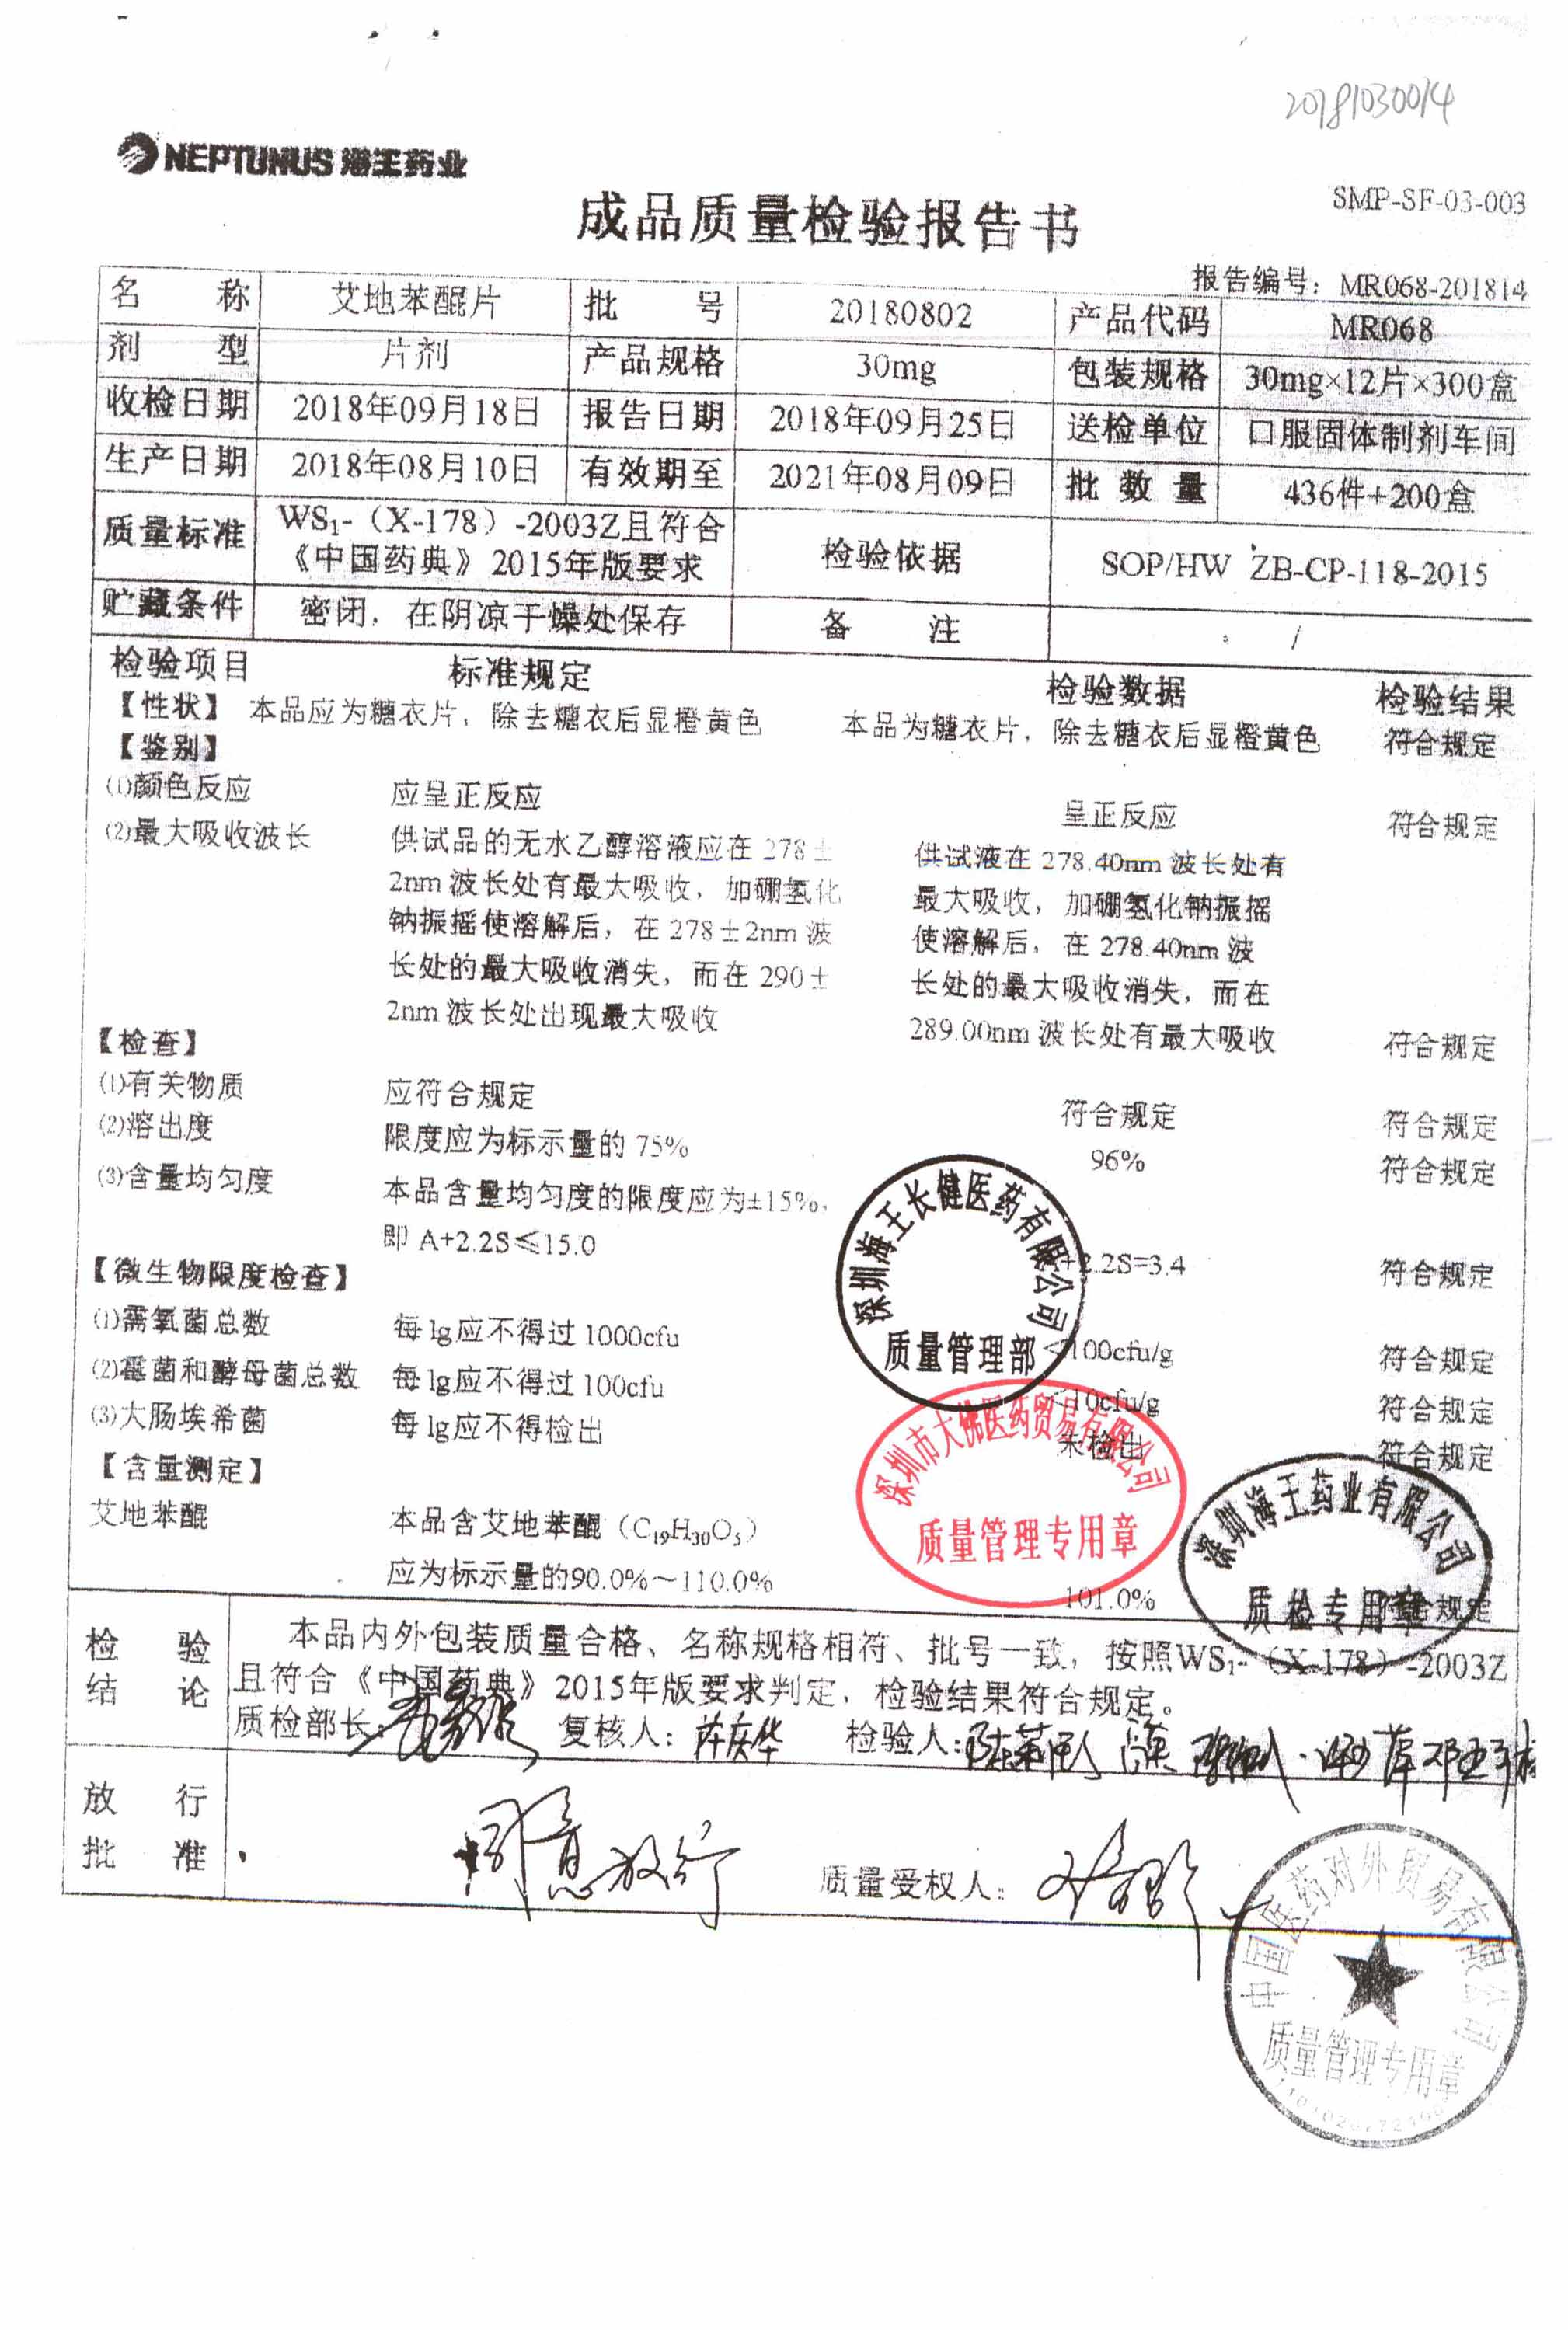 20181030014
NEPTUNUS 海王药业
SMP-SF-03-003
成品质量检验报告书
报告编号：MR068-201814
名 称 艾地苯醌片 批 号 20180802 产品代码 MR068
剂 型 片剂 产品规格 30mg 包装规格 30mg×12片×300盒
收检日期 2018年09月18日 报告日期 2018年09月25日 送检单位 口服固体制剂车间
生产日期 2018年08月10日 有效期至 2021年08月09日 批 数 量 436件+200盒
质量标准 WS₁-（X-178）-2003Z且符合
《中国药典》2015年版要求 检验依据 SOP/HW ZB-CP-118-2015
贮藏条件 密闭，在阴凉干燥处保存 备 注 /
检验项目 标准规定 检验数据 检验结果
【性状】 本品应为糖衣片，除去糖衣后显橙黄色 本品为糖衣片，除去糖衣后显橙黄色 符合规定
【鉴别】
(1)颜色反应 应呈正反应 呈正反应 符合规定
(2)最大吸收波长 供试品的无水乙醇溶液应在 278± 供试液在 278.40nm 波长处有
2nm 波长处有最大吸收，加硼氢化 最大吸收，加硼氢化钠振摇
钠振摇使溶解后，在 278±2nm 波 使溶解后，在 278.40nm 波
长处的最大吸收消失，而在 290± 长处的最大吸收消失，而在
2nm 波长处出现最大吸收 289.00nm 波长处有最大吸收 符合规定
【检查】
(1)有关物质 应符合规定 符合规定 符合规定
(2)溶出度 限度应为标示量的 75% 96% 符合规定
(3)含量均匀度 本品含量均匀度的限度应为±15%，
即 A+2.2S≤15.0 +2.2S=3.4 符合规定
【微生物限度检查】
(1)需氧菌总数 每1g应不得过 1000cfu <100cfu/g 符合规定
(2)霉菌和酵母菌总数 每1g应不得过 100cfu <10cfu/g 符合规定
(3)大肠埃希菌 每1g应不得检出 未检出 符合规定
【含量测定】
艾地苯醌 本品含艾地苯醌（C₁₉H₃₀O₅）
应为标示量的90.0%～110.0% 101.0% 符合规定
深圳海王长健医药有限公司
质量管理部
深圳市大佛医药贸易有限公司
质量管理专用章
深圳海王药业有限公司
质检专用章
检 验
结 论
本品内外包装质量合格、名称规格相符、批号一致，按照WS₁-（X-178）-2003Z
且符合《中国药典》2015年版要求判定，检验结果符合规定。
质检部长： 复核人： 检验人：
放 行
批 准
同意放行 质量受权人：
中国医药对外贸易有限公司
质量管理专用章